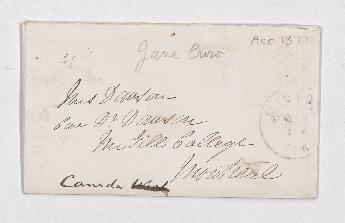 Jane Crow
Acc 1377
Mrs Dawson
Care Dr Dawson
McGill College
Montreal
Canada West